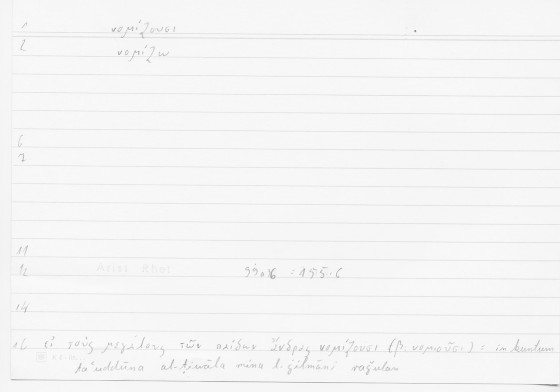 1 νομίζουσι
2 νομίζω
6
7
11
12 Arist Rhet
14
16 εἰ τοὺς μεγάλους τῶν παίδων ἄνδρας νομίζουσι (β. νομιοῦσι) : in kuntum
ta'uddūna al-ṭiwāla mina l-ġilmāni